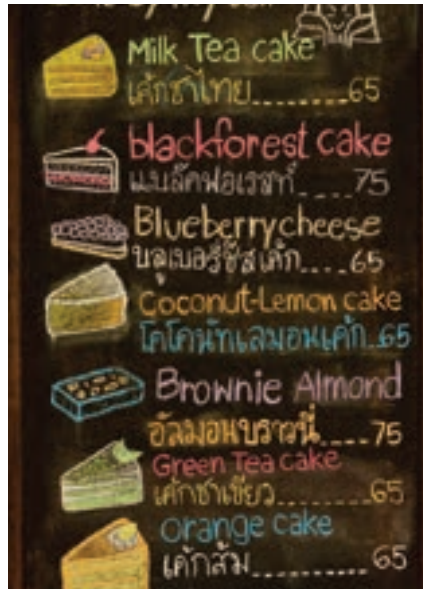 Milk Tea cake
เค้กชาไทย........65
blackforest cake
แบล็คฟอเรสท์....75
Blueberrycheese
บลูเบอรี่ชีสเค้ก....65
Coconut-Lemon cake
โคโคนัทเลมอนเค้ก..65
Brownie Almond
อัลมอนบราวนี่....75
Green Tea cake
เค้กชาเขียว........65
orange cake
เค้กส้ม..........65